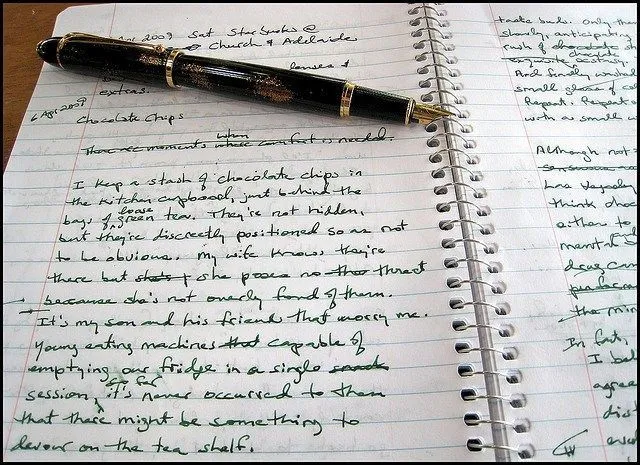 Apr 2009 Sat Starbucks @
Church & Adelaide
lenses &
extras.
6 Apr 2009
Chocolate Chips
when
There are moments where comfort is needed.
I keep a stash of chocolate chips in
the kitchen cupboard, just behind the
loose
bags of green tea. They're not hidden,
but they're discreetly positioned so as not
to be obvious. My wife knows they're
there but she's she poses no threat
because she's not overly fond of them.
It's my son and his friend that worry me.
Young eating machines that capable of
emptying our fridge in a single
so far
session, it's never occurred to them
that there might be something to
devour on the tea shelf.
taste buds. Only then
slowly, anticipating
rush of chocolate
chocolate
exquisite ecstasy.
And finally washed
small glass of
Repeat. Repeat
with a small
Although not
think choc
either to
drug
perform
the min
In fact,
I bel
agree